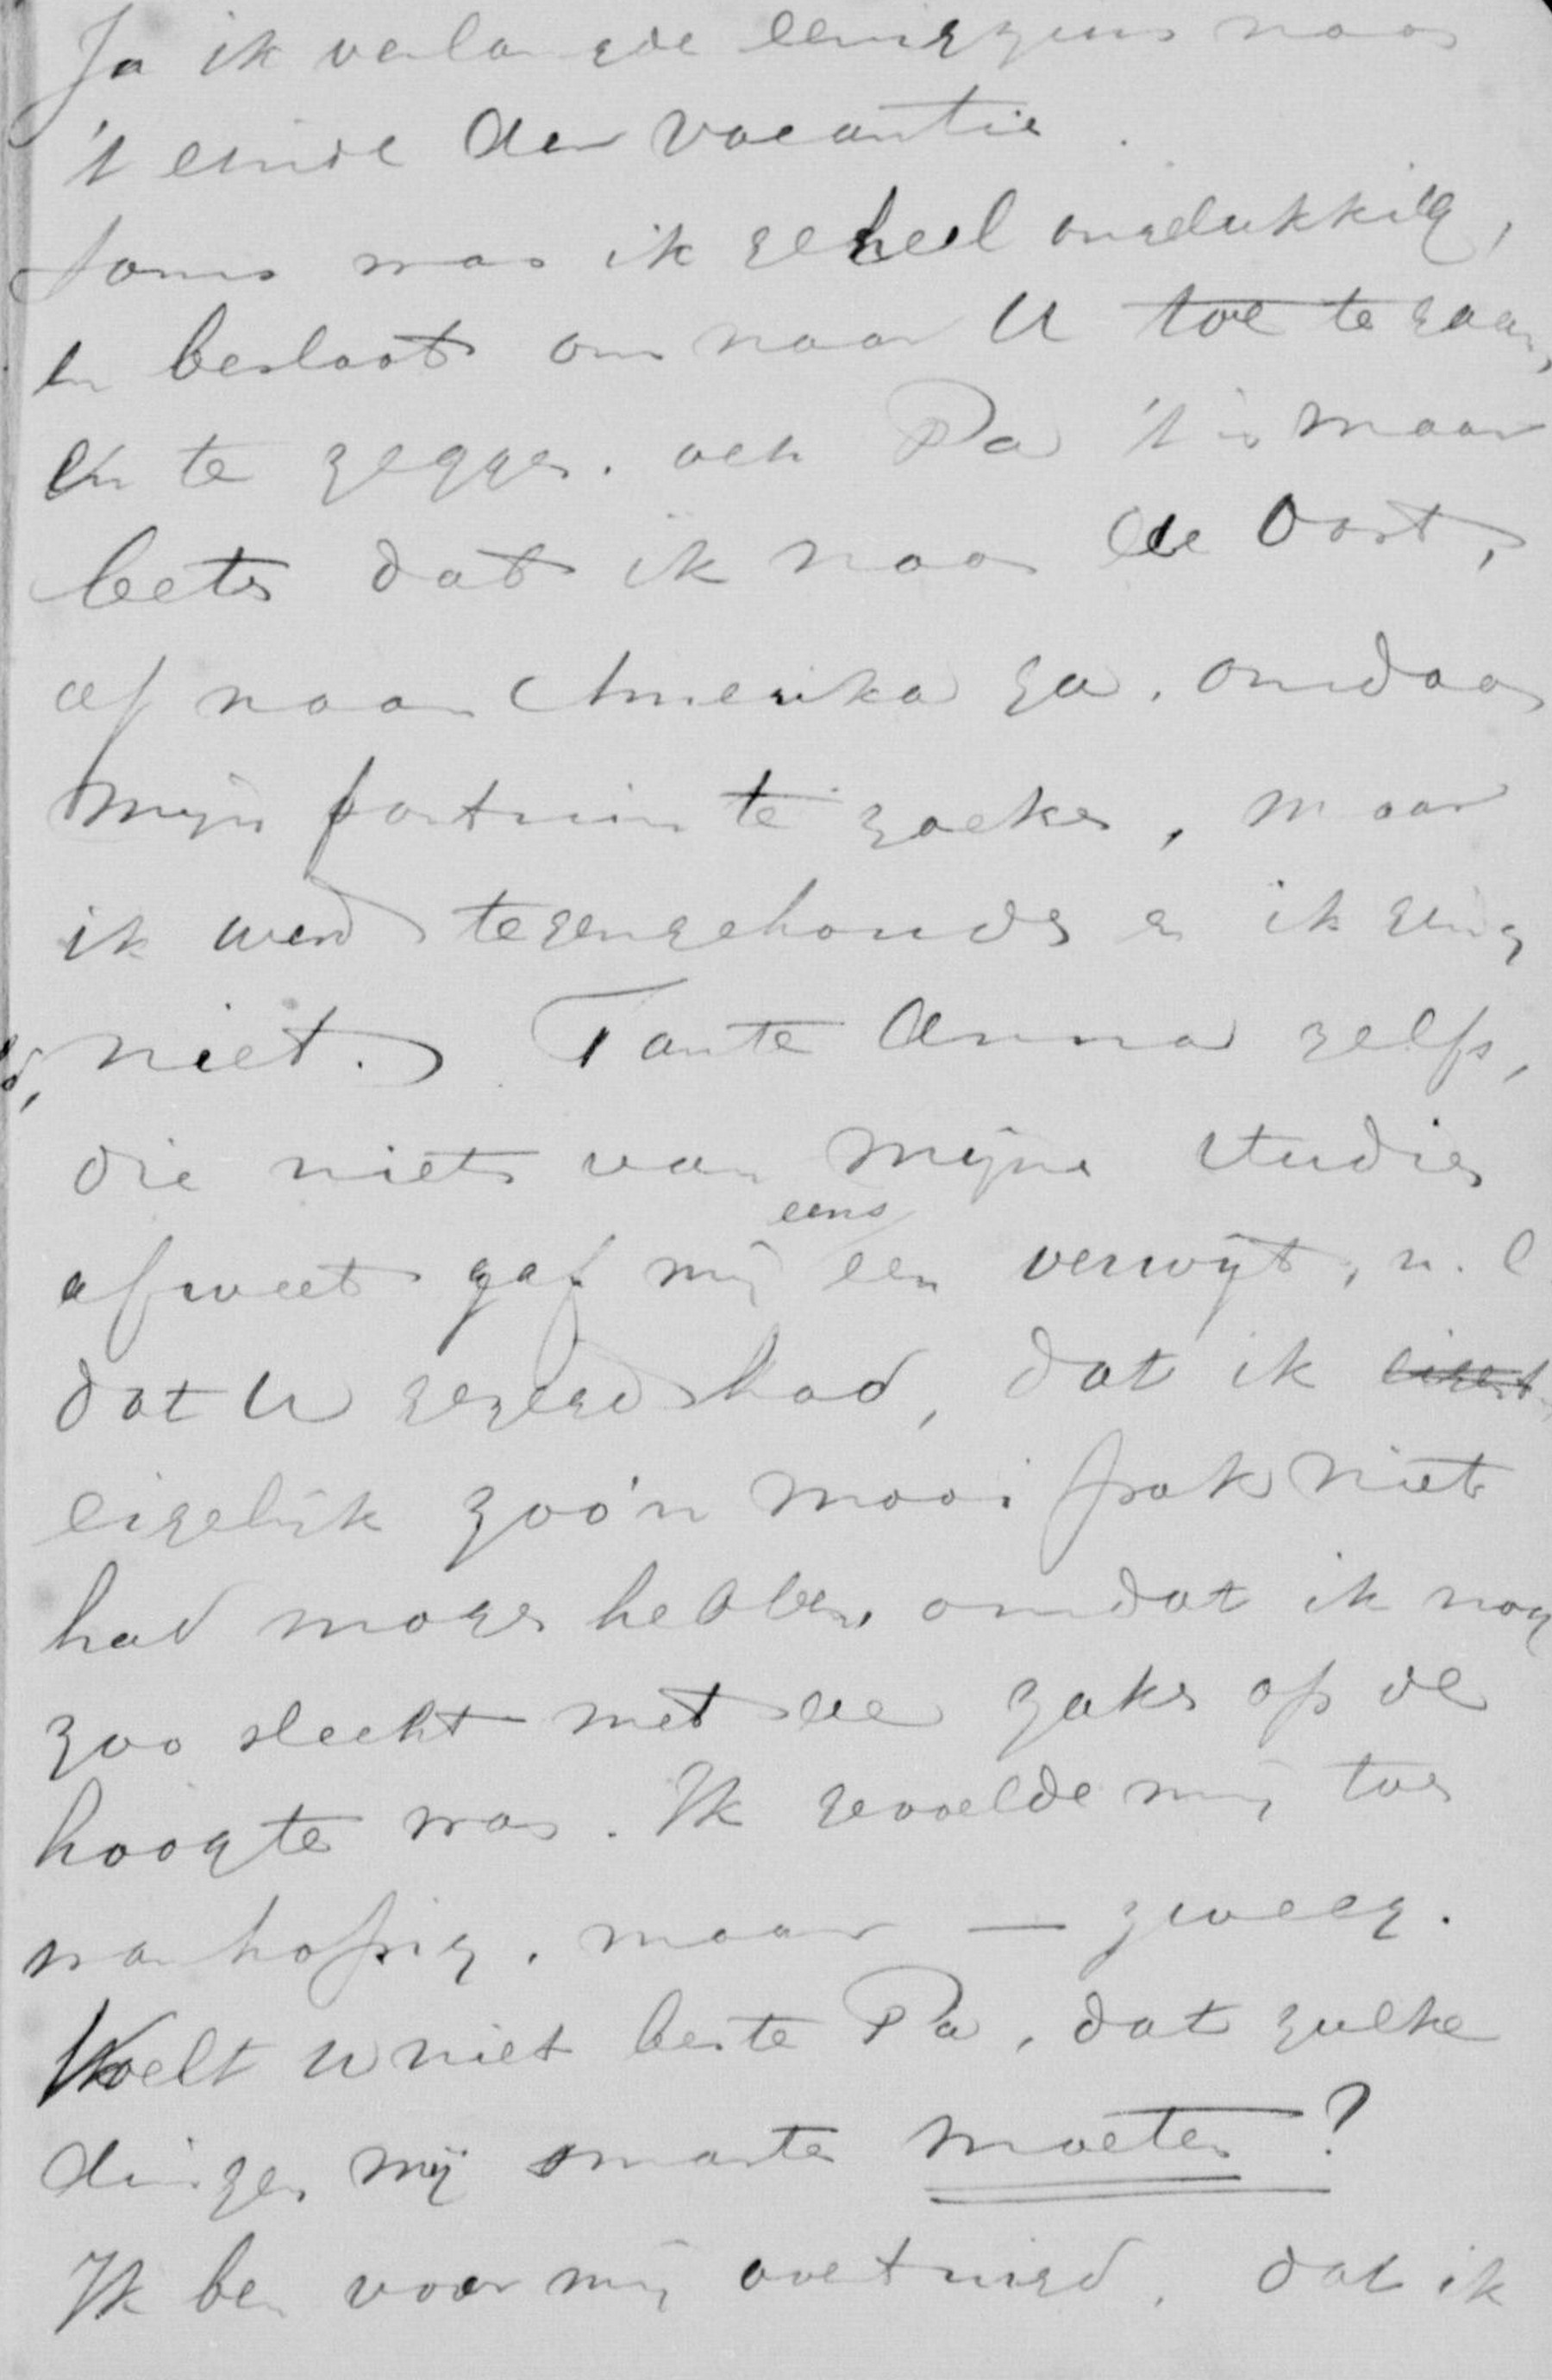 Ja ik verlangde eenigzins naar
't einde der vacantie.
Soms was ik geheel ongelukkig,
en besloot om naar U toe te gaan,
en te zeggen. och Pa 't is maar
beter dat ik naar de Oost,
of naar Amerika ga. om daar
mijn fortuin te zoeken, maar
ik werd tegengehouden en ik ging
niet. Tante Anna zelfs,
die niets van mijne studies
eens
afweet gaf mij een verwijt, n. l
dat U gezegd had, dat ik
eigelijk zoo'n mooi frak niet
had mogen hebben, omdat ik nog
zoo slecht met de zaken op de
hoogte was. Ik gevoelde mij toen
wanhopig. maar — zweeg.
Voelt U niet beste Pa, dat zulke
dingen mij smarten moeten?
Ik ben voor mij overtuigd, dat ik